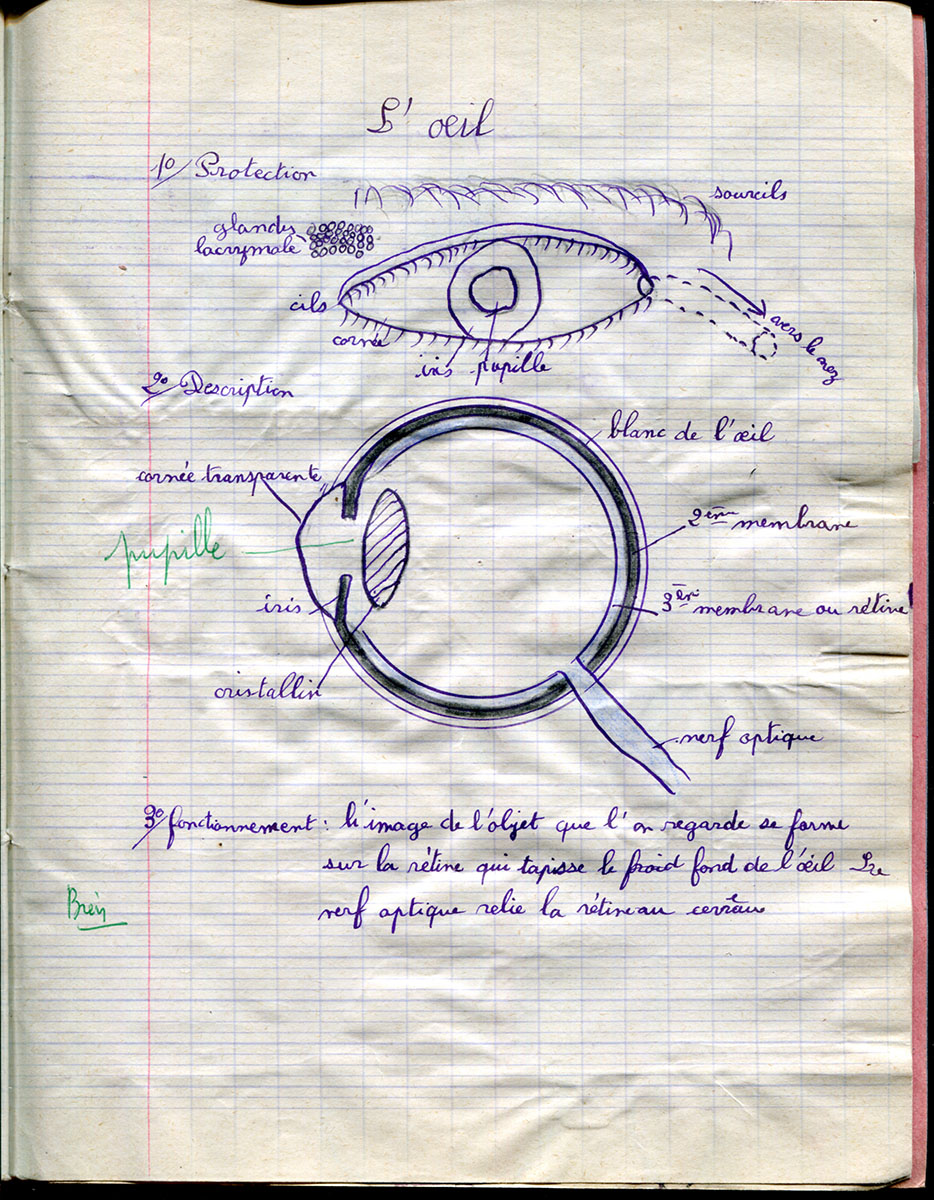 L' œil
1º/ Protection
sourcils
glandes
lacrymale
cils
cornée
iris
pupille
vers le nez
2º/ Description
blanc de l'œil
cornée transparente
2ème membrane
pupille
3èm membrane ou rétine
iris
cristallin
nerf optique
3º/ fonctionnement : l'image de l'objet que l'on regarde se forme
sur la rétine qui tapisse le froid fond de l'œil Le
Bien
nerf optique relie la rétine au cerveau